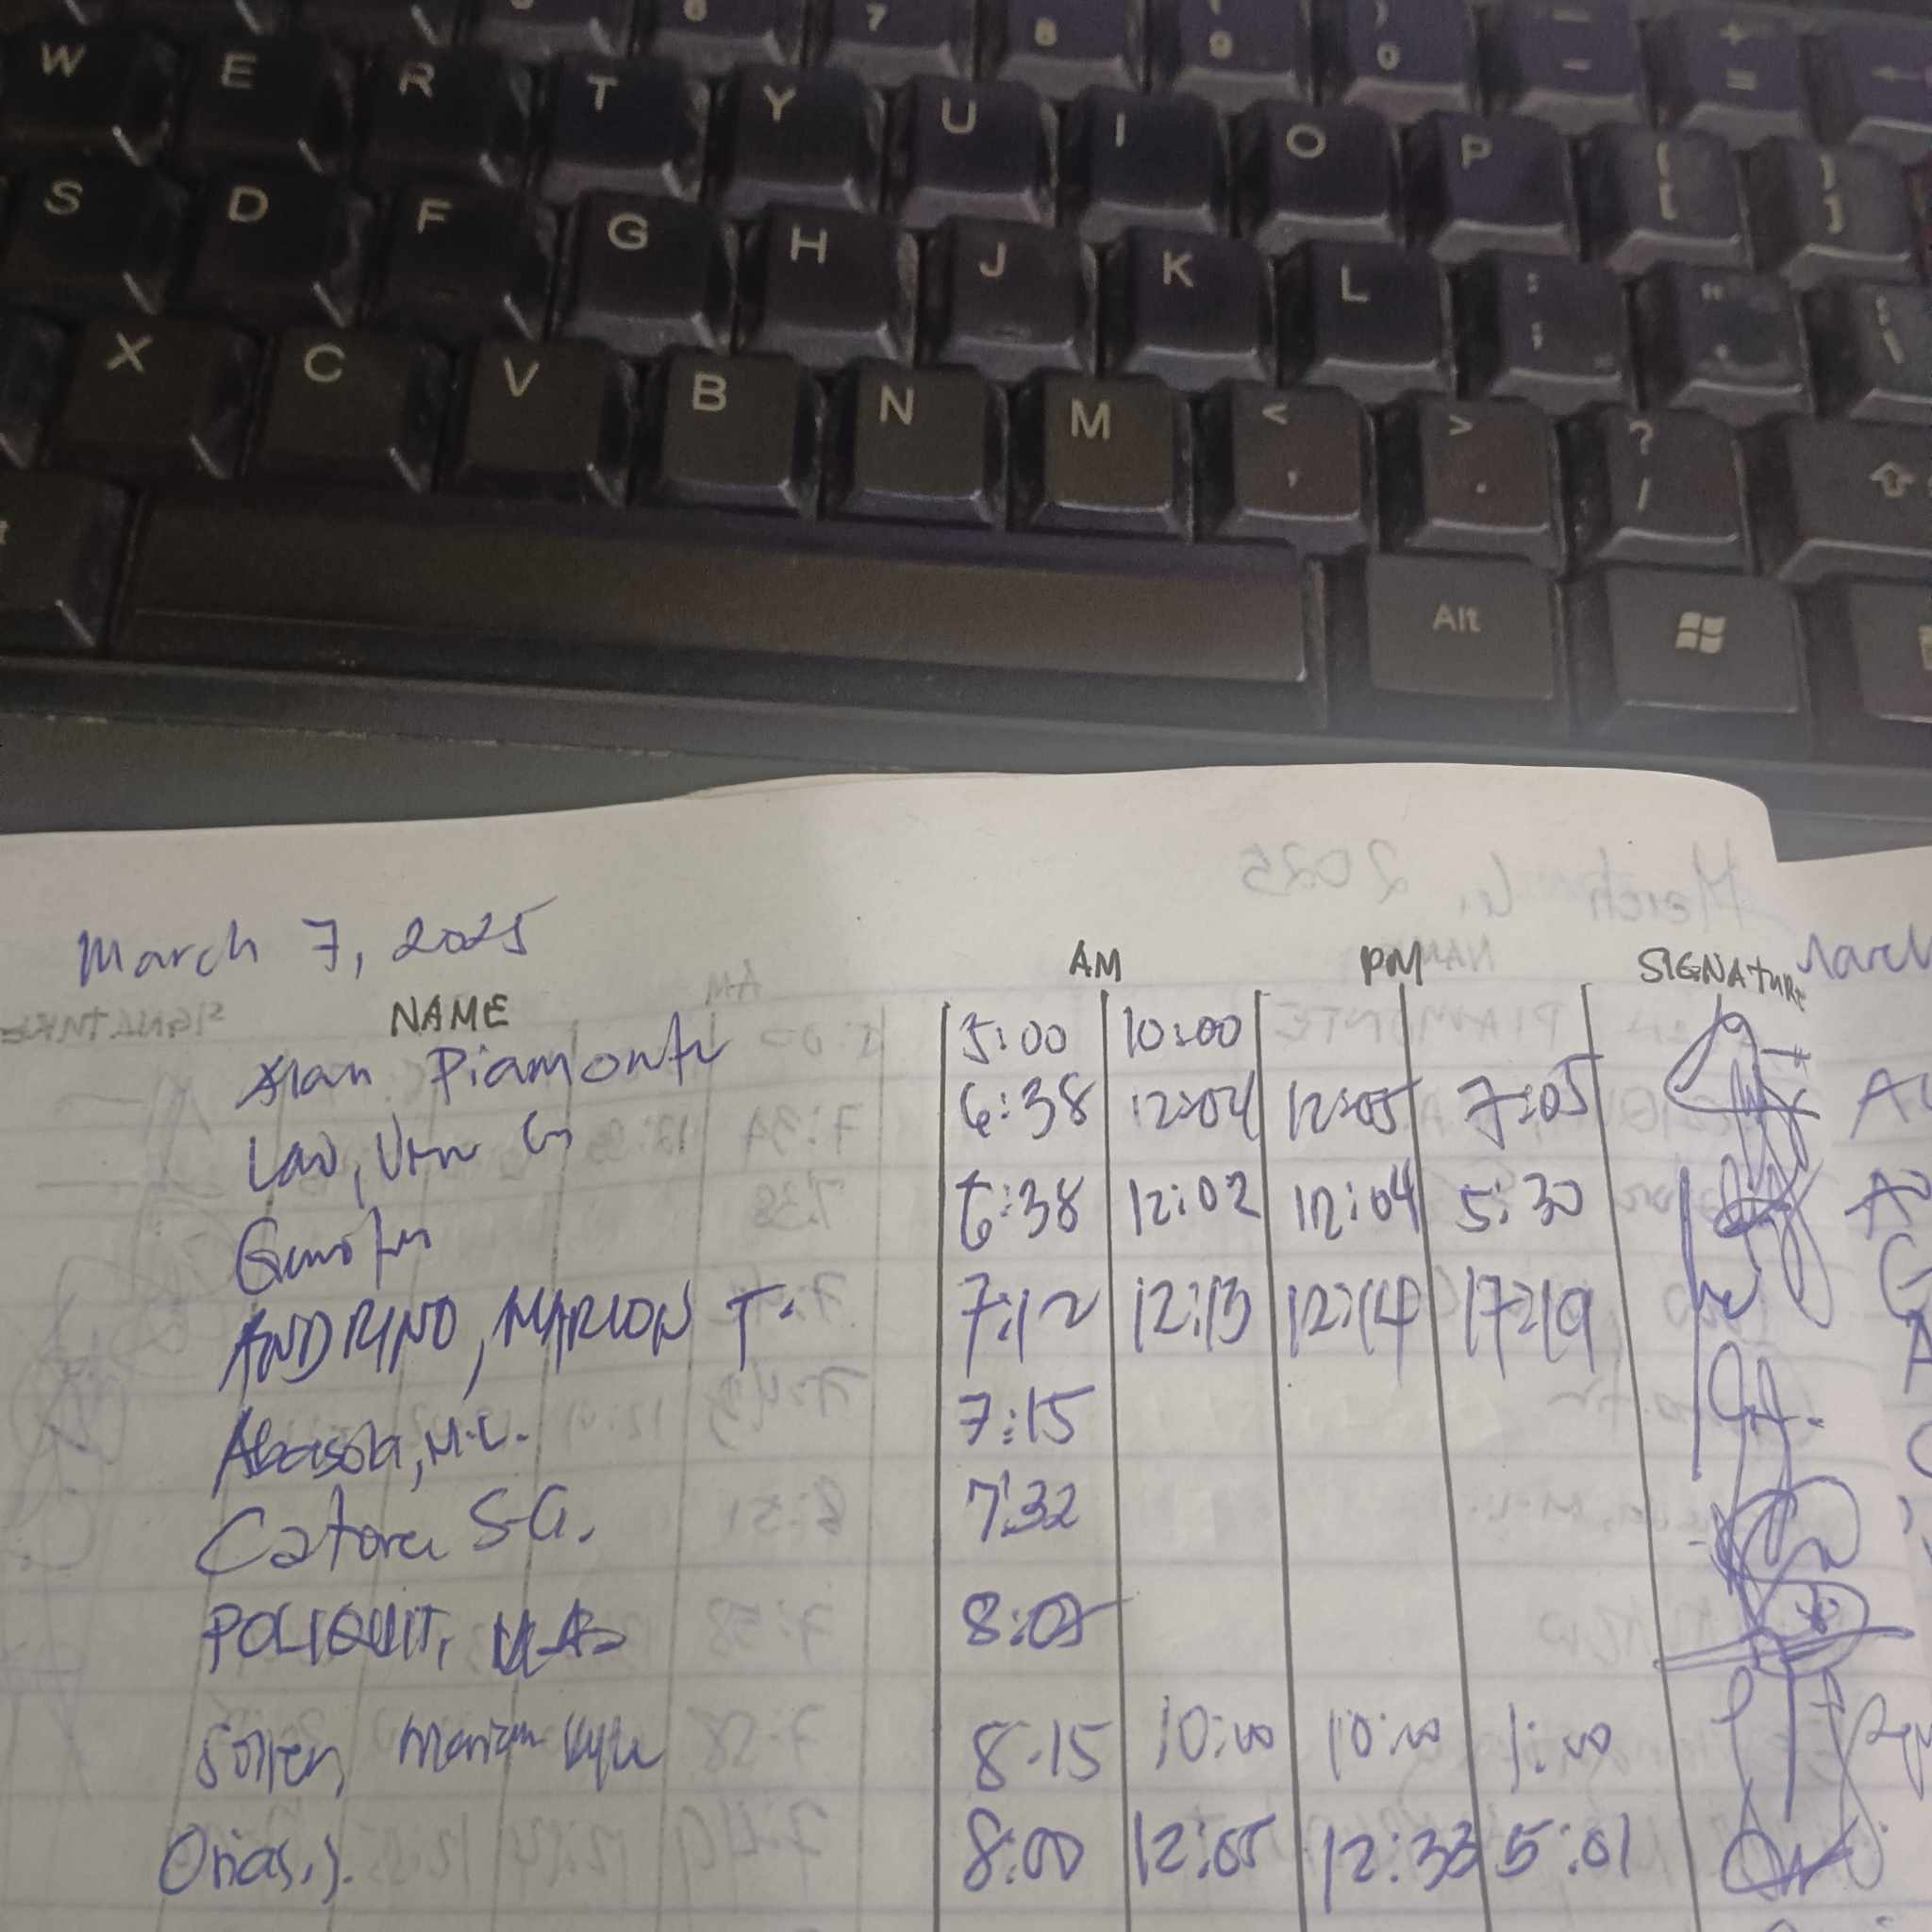 5 6 7 8 9 ) 0 _ - + =
W E R T Y U I O P { [ } ]
S D F G H J K L : ; "
X C V B N M < , > . ? /
Alt
March 7, 2025
NAME AM PM SIGNATURE
Alan Piamonte 5:00 10:00
Lao, G 6:38 12:04 12:05 7:05
6:38 12:02 12:04 5:30
ANDRINO, MARLON T. 7:12 12:13 12:14 17:19
Abasola, M.L. 7:15
Catora S.G. 7:32
POLIQUIT, 8:05
8:15 10:00 10:00 1:00
Orias, J. 8:00 12:05 12:33 5:01